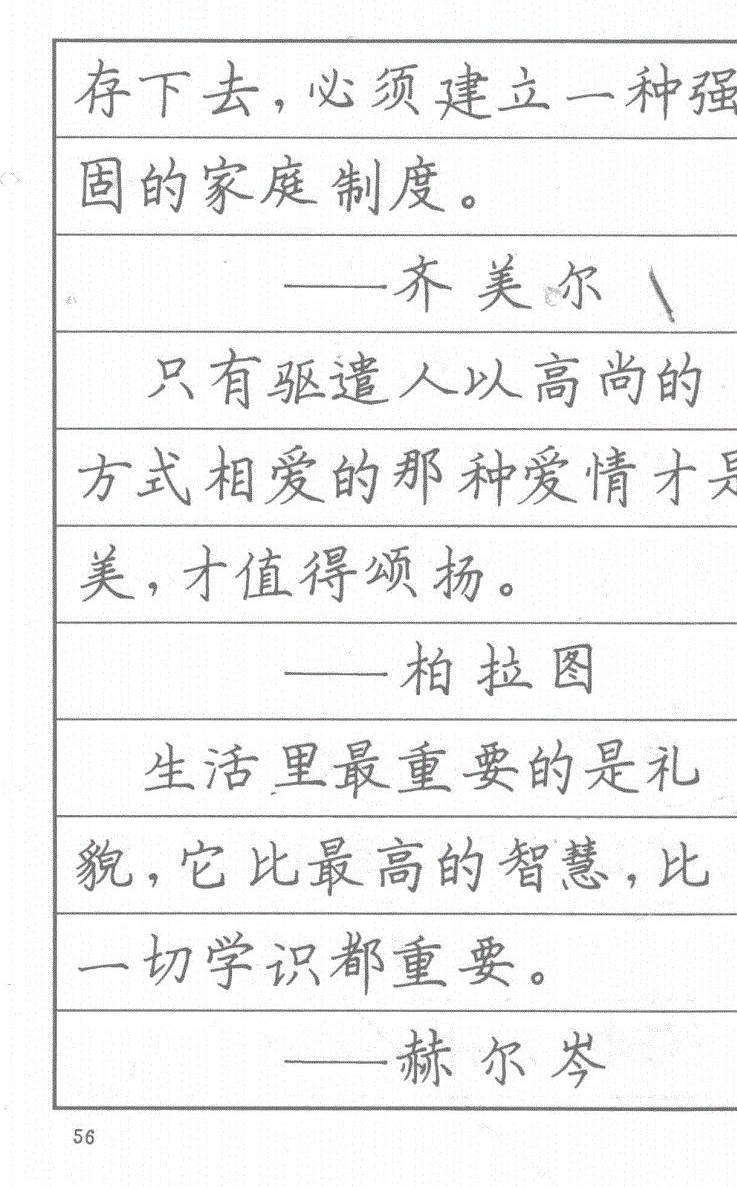 存下去,必须建立一种强
固的家庭制度。
——齐美尔
只有驱遣人以高尚的
方式相爱的那种爱情才是
美,才值得颂扬。
——柏拉图
生活里最重要的是礼
貌,它比最高的智慧,比
一切学识都重要。
——赫尔岑
56